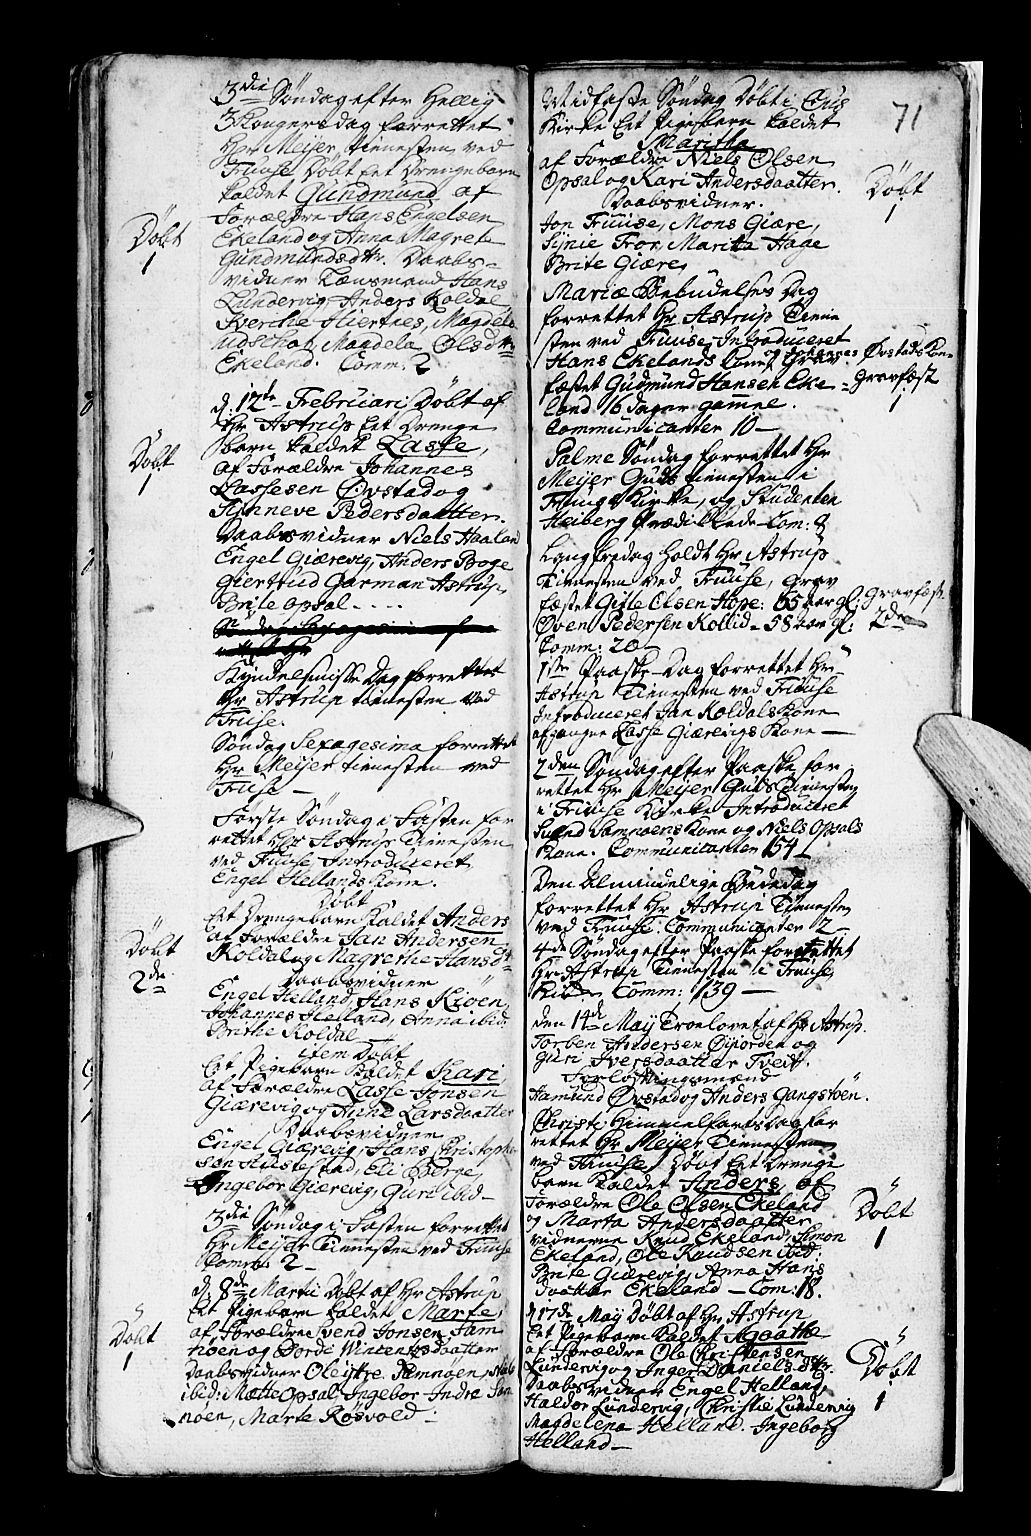 3die Søndag efter Hellig
3 Kongers dag forrettet
Hr Meijer tienesten ved
Fuuse Døbt Eet Drengebarn
kaldet Gundmund af
Forældre Hans Engelsen
Ekeland og Anna Magrete
Gundmundsdtr. Daabs-
vidner Lænsmand Hans
Lundervig, Anders Koldal
Sverche Hiertnes, Magdela
Magdela Olsdtr
Ekeland. Comm: 2
Døbt
1
d: 12te Februari Døbt af
Hr Astrup Eet Drenge
barn kaldet Lasse,
af Forældre Johannes
Lassesen Øvstad og
Sinneve Pedersdaatter.
Daabsvidner Niels Haaland
Engel Giærevig, Anders Boge
Giertrud Garman Astrup,
Brite Opsal - - - -
Døbt
1
Kyndelmisse Dag forrettet
Hr Astrup tienesten ved
Fuse.
Søndag Sexagesima forrettet
Hr Meijer tienesten ved
Fuse —
Første Søndag i Fasten for
rettet Hr Astrup Tienesten
ved Fuuse, Introduceret
Engel Hellands Kone.
Døbt
Eet Drengebarn kaldet Anders
af Forældre Jan Andersen
Koldal og Magrethe Hansdtr
Daabsvidner
Engel Helland, Hans Kioen,
Johannes Helland, Anna ibid.
Brithe Koldal —
Døbt
2de
item Døbt
Eet Pigebarn kaldet Kari,
af Forældre Lasse Jonsen
Giærevig og Anne Larsdaatter
Daabsvidner
Engel Giærevig, Hans Christophe
sen Hustestad, Eli Børge,
Ingebor Giærevig, Guri ibid —
3die Søndag i Fasten forrettet
Hr Meijer Tienesten ved Fuuse
Comm: 2 —
d. 8de Martii Døbt af Hr Astrup
Eet Pigebarn kaldet Marte,
af Forældre Svend Jonsen Sam
nøen og Dorde Wintersdaatter
Daabsvidner Ole Samnøen,
ibid: Mette Opsal, Ingebor Indre Sam
nøen, Marte Røsvold —
Døbt
1
71
Midfaste Søndag Døbt i Ous
Kirke Eet Pigebarn kaldet
Maritha
af Forældre Niels Olsen
Opsal og Kari Andersdaatter.
Daabsvidner.
Jon Fuuse, Mons Giære,
Synie Fror, Marita Hage
Brite Giære,
Døbt
1
Mariæ Bebudelses Dag
forrettet Hr Astrup Tiene
sten ved Fuuse, Introduceret
Hans Ekelands Kone og Johannes Øvstads Kone
Grav
fæstet Gudmund Hansen Eke
land 16 dager gamel.
Communicanter 10 —
Gravfæst
1
Palme Søndag forrettet Hr
Meijer Guds tienesten i
Fuuse Kirke, og Studenten
Heiberg Prædikkede. Com: 8
Langfredag holdt Hr Astrup
Tienesten ved Fuuse, Grav
fæstet Gitle Olsen Hope: 65 aar gl:
Øven Pedersen Kollid — 58 aar gl:
Comm: 20 —
Gravfæst
2de
1ste Paaske-Dag forrettet Hr
Astrup Tienesten ved Fuuse
Introduceret Jan Koldals Kone
afgangne Lasse Giærevigs Kone —
2den Søndag efter Paaske for
rettet Hr Meijer Guds Tienesten
i Fuuse Kirke Introduceret
Svend Samnøens Kone og Niels Opsals
Kone. Communicanter 154
Den Almindelige Bededag
forrettet Hr Astrup Tienesten
ved Fuuse. Communicanter 12 —
4de Søndag efter Paaske forrettet
Hr Astrup Tienesten i Fuuse
Kirke Comm: 139 —
den 14de Maij Troelovet af Hr Astrup.
Torben Andersen Øiiorden og
Guri Iversdaatter Tveit.
Forløftningsmænd
Hamund Øvstad og Anders Gangstøen.
Christi Himmelfarts Dag for
rettet Hr Meijer Tienesten
ved Fuuse, Døbt Eet Drenge
barn kaldet Anders, af
Forældre Ole Olsen Ekeland
og Marta Andersdaatter
vidnerne Knud Ekeland, Simon
Ekeland, Ole Knudsen ibid:
Brite Giærevig, Anna Hans
daatter Ekeland — Com: 18.
Døbt
1
d 17de Maij Døbt af Hr Astrup
Eet Pigebarn kaldet Agaathe
af Forældre Ole Christensen
Lundervig og Inger Danielsdtr.
Daabsvidner Engel Helland,
Haldor Lundervig, Christie Lundervig
Magdelena Helland. Ingeborg
Helland —
Døbt
1